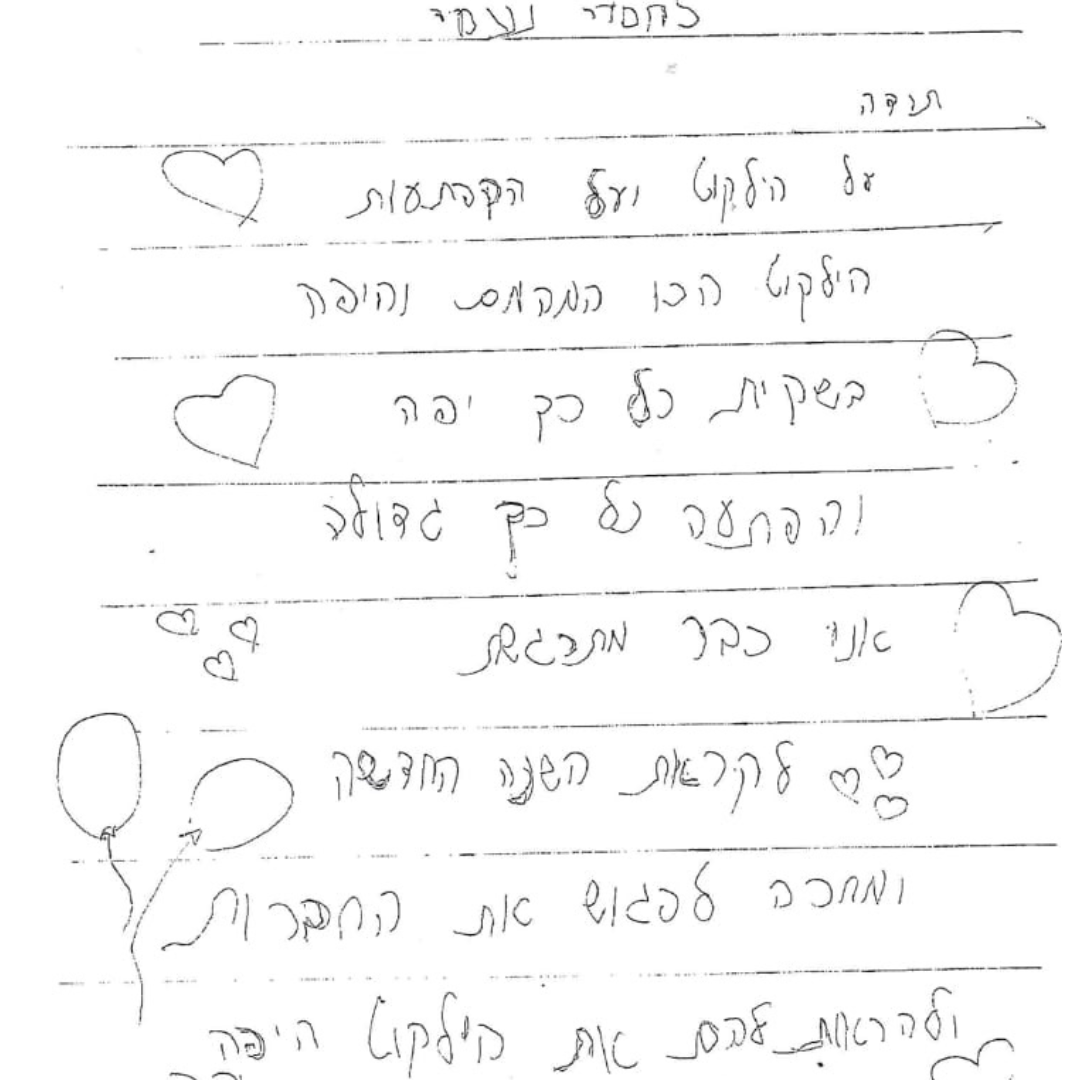 לחסדי נעמי
תודה
על הילקוט ועל הקפתעות
הילקוט הכו המקמם והיפה
בשקית כל כך יפה
והפתעה כל כך גדולה
אני כבר מתרגשת
לקראת השנה החדשה
ומחכה לפגוש את החברות
ולהראות להם את הילקוט היפה